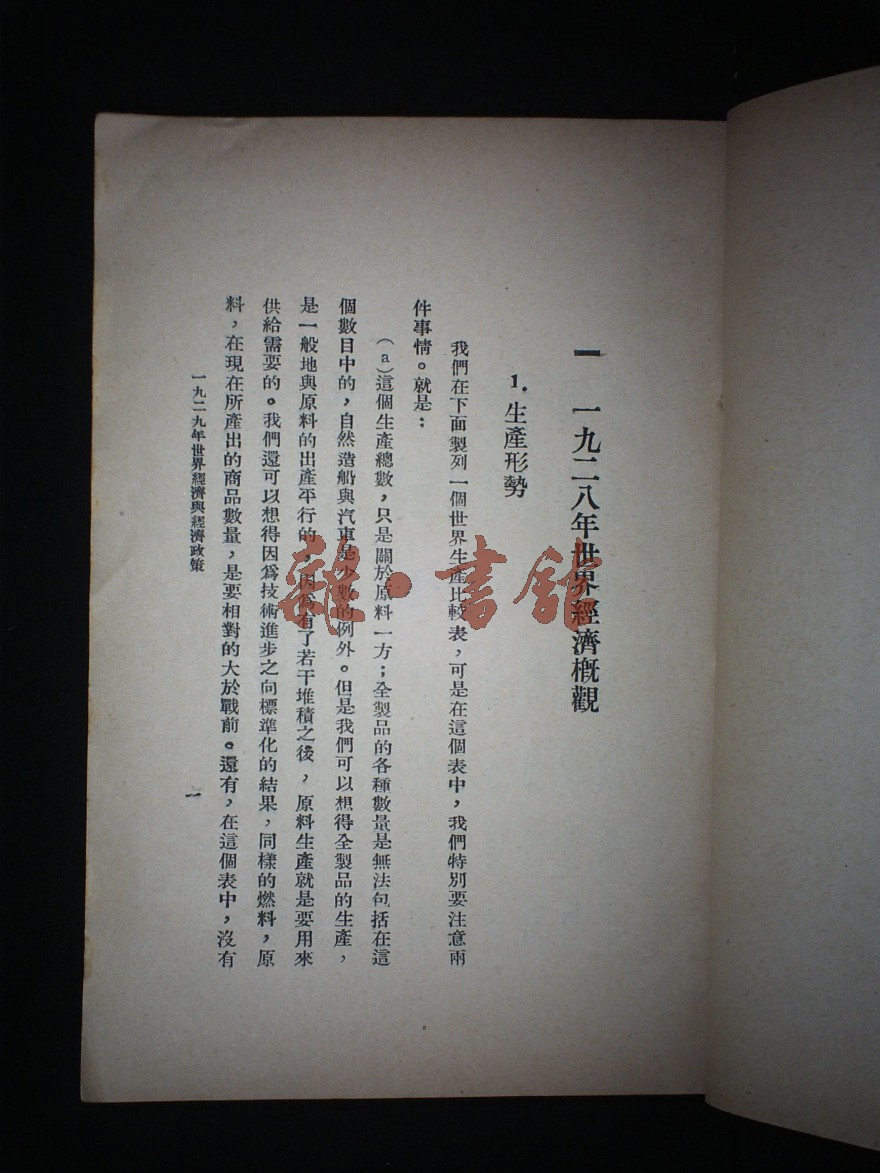 一　一九二八年世界經濟槪觀
1. 生產形勢
我們在下面製列一個世界生產比較表，可是在這個表中，我們特別要注意兩
件事情。就是：
（a）這個生產總數，只是關於原料一方；全製品的各種數量是無法包括在這
個數目中的，自然造船與汽車是少數的例外。但是我們可以想得全製品的生產，
是一般地與原料的出產平行的，因爲有了若干堆積之後，原料生產就是要用來
供給需要的。我們還可以想得因爲技術進步之向標準化的結果，同樣的燃料，原
料，在現在所產出的商品數量，是要相對的大於戰前。還有，在這個表中，沒有
一九二九年世界經濟與經濟政策
一
龍·書館